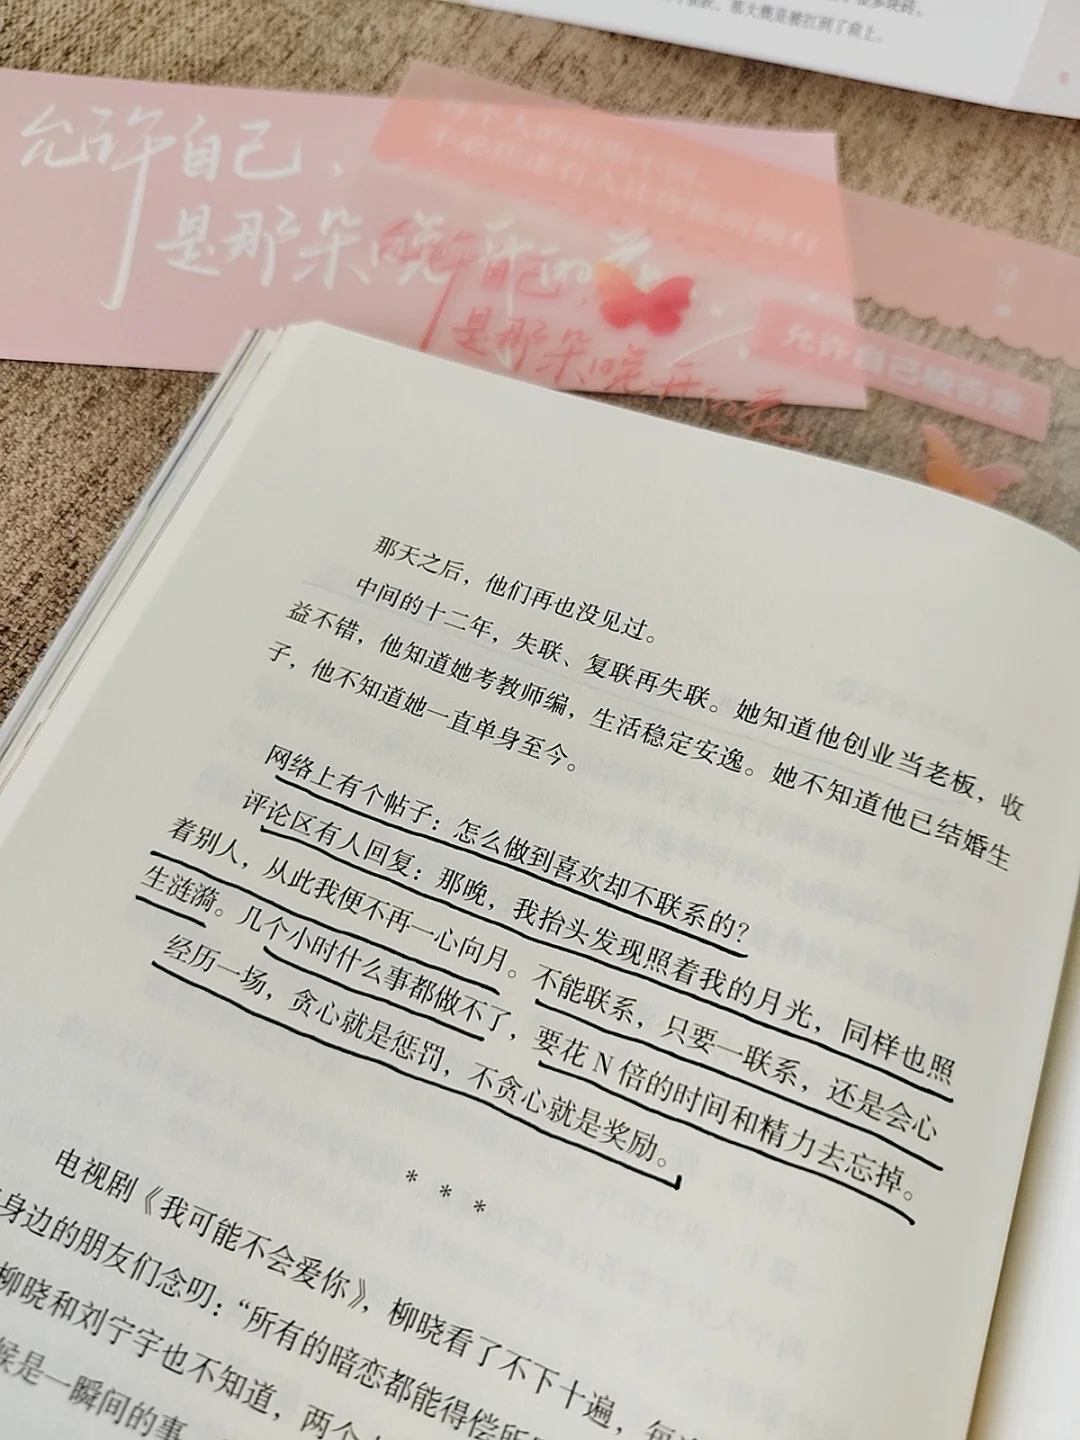 允许自己，
是那朵晚开的花
允许自己，
是那朵晚开的花
那天之后，他们再也没见过。
中间的十二年，失联、复联再失联。她知道他创业当老板，收
益不错，他知道她考教师编，生活稳定安逸。她不知道他已结婚生
子，他不知道她一直单身至今。
网络上有个帖子：怎么做到喜欢却不联系的？
评论区有人回复：那晚，我抬头发现照着我的月光，同样也照
着别人，从此我便不再一心向月。不能联系，只要一联系，还是会心
生涟漪。几个小时什么事都做不了，要花 N 倍的时间和精力去忘掉。
经历一场，贪心就是惩罚，不贪心就是奖励。
* * *
电视剧《我可能不会爱你》，柳晓看了不下十遍，每
身边的朋友们念叨：“所有的暗恋都能得偿所
柳晓和刘宁宇也不知道，两个
候是一瞬间的事